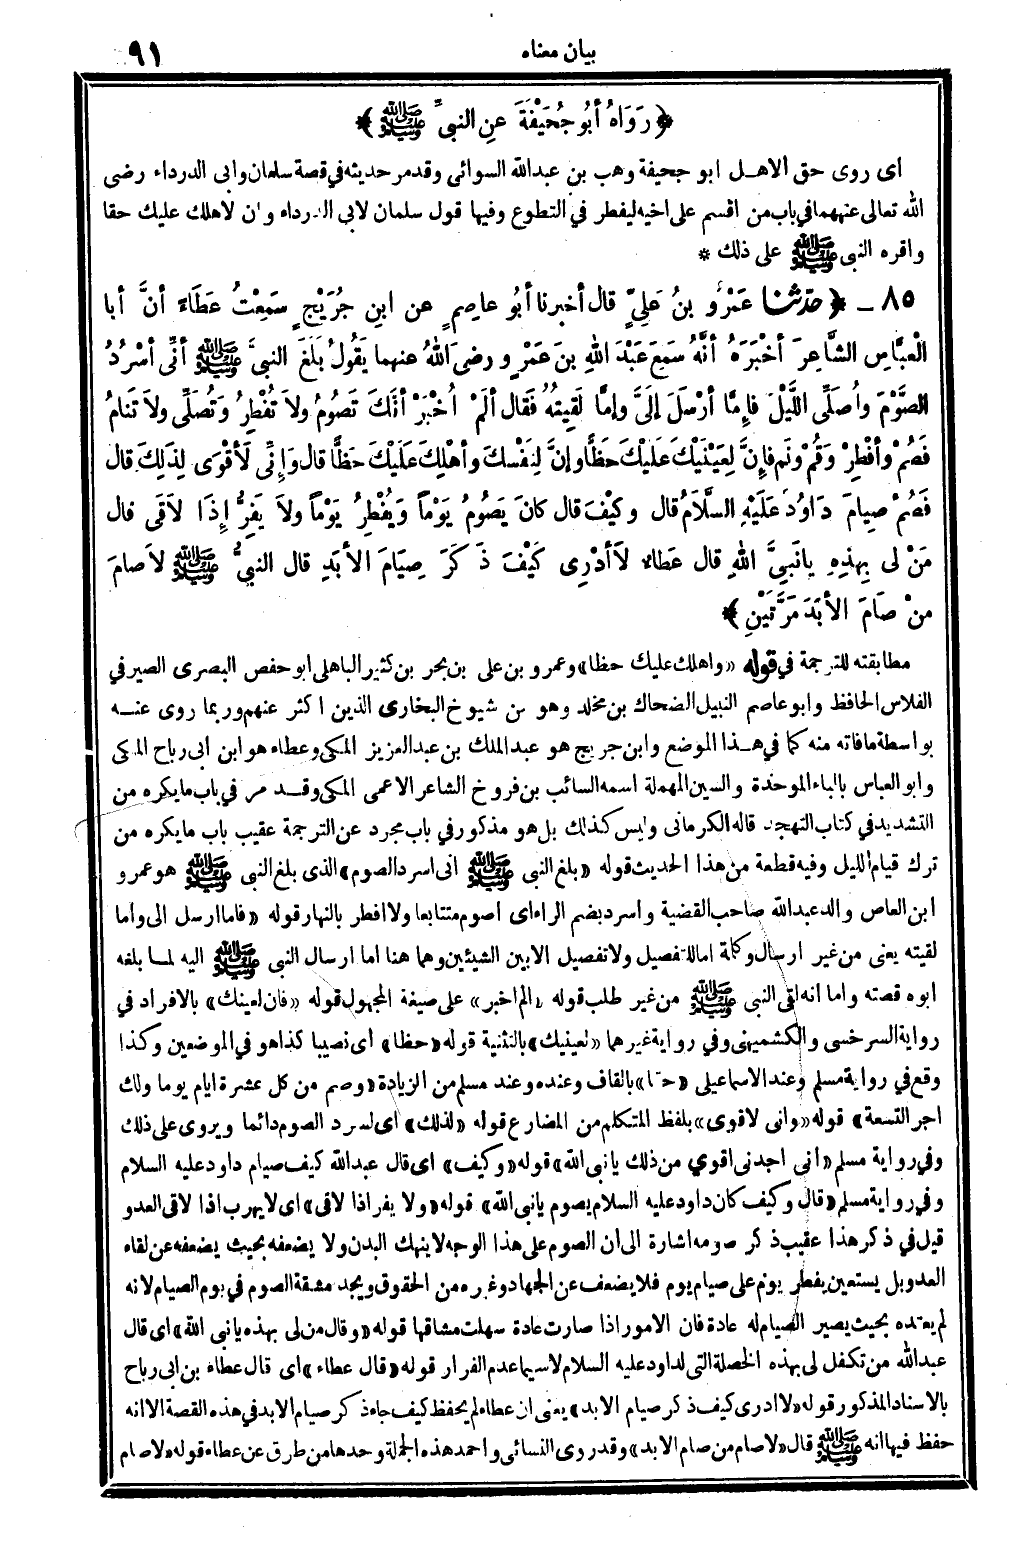 بيان معناه ٩١
﴿ رَوَاهُ أبُو جُحَيْفَةَ عنِ النبيِّ ﷺ ﴾
اى روى حق الاهـل ابو جحيفة وهب بن عبدالله السوائى وقدمر حديثه في قصة سلمان وابى الدرداء رضى
الله تعالى عنهما في باب من اقسم على اخيه ليفطر في التطوع وفيها قول سلمان لابى الدرداء وان لاهلك عليك حقا
واقره النبى ﷺ على ذلك *
٨٥ ـ ﴿ حدثنا عَمْرُو بنُ عَلِيٍّ قال أخبرنا أبُو عاصِمٍ عن ابنِ جُرَيْجٍ سَمِعْتُ عَطَاءً أنَّ أبا
الْعبَّاسِ الشَّاعِرَ أخْبَرَهُ أنَّهُ سَمِعَ عَبْدَ اللهِ بنَ عَمْرٍ و رضى اللهُ عنهما يَقُولُ بَلَغَ النبيَّ ﷺ أنِّى أسْرُدُ
الصَّوْمَ وأُصَلِّى اللَّيْلَ فإمَّا أرْسَلَ إلَىَّ وإمَّا لَقِيتُهُ فَقال ألَمْ أُخْبَرْ أنَّكَ تَصُومُ ولاَ تُفْطِرُ وَتُصَلِّى ولاَ تَنامُ
فَصُمْ وأفْطِرْ وَقُمْ ونَم فإنَّ لِعَيْنَيْكَ عَلَيْكَ حَظًّا وإنَّ لِنَفْسِكَ وأهْلِكَ عَلَيْكَ حَظًّا قال وَإنِّى لَأقْوَى لِذَلِكَ قال
فَصُمْ صِيامَ دَاوُدَ عَلَيْهِ السَّلاَمُ قال وكَيْفَ قال كانَ يَصُومُ يَوْماً وَيُفْطِرُ يَوْماً ولاَ يَفِرُّ إذَا لاَقَى قال
مَنْ لى بِهذِهِ يانَبِيَّ اللهِ قال عَطاءٌ لاَ أدْرِى كَيْفَ ذَكَرَ صِيَامَ الأبَدِ قال النبيُّ ﷺ لاَ صَامَ
منْ صَامَ الأبَدَ مَرَّتَيْنِ ﴾
مطابقته للترجمة في قوله «واهلك عليك حظا» وعمرو بن على بن بحر بن كثير الباهلى ابو حفص البصرى الصيرفي
الفلاس الحافظ وابو عاصم النبيل الضحاك بن مخلد وهو من شيوخ البخارى الذين اكثر عنهم وربما روى عنـه
بواسطة مافاته منه كما في هـذا الموضع وابن جريج هو عبدالملك بن عبدالعزيز المكى وعطاء هو ابن ابى رباح المكى
وابو العباس بالباء الموحدة والسين المهملة اسمه السائب بن فروخ الشاعر الاعمى المكى وقـد مر في باب مايكره من
التشديد في كتاب التهجد قاله الكرمانى وليس كذلك بل هو مذكور في باب مجرد عن الترجمة عقيب باب مايكره من
ترك قيام الليل وفيه قطعة من هذا الحديث قوله «بلغ النبى ﷺ انى اسرد الصوم» الذى بلغ النبى ﷺ هو عمرو
ابن العاص والد عبدالله صاحب القضية واسرد بضم الراء اى اصوم متتابعا ولا افطر بالنهار قوله «فاما ارسل الى واما
لقيته يعنى من غير ارسال وكلمة اما للتفصيل ولا تفصيل الا بين الشيئين وهما هنا اما ارسال النبى ﷺ اليه لمـا بلغه
ابوه قصته واما انه لقى النبى ﷺ من غير طلب قوله «الم اخبر» على صيغة المجهول قوله «فان لعينك» بالافراد في
رواية السرخسى والكشميهنى وفي رواية غيرهما «لعينيك» بالتثنية قوله «حظا» اى نصيبا كذا هو في الموضعين وكذا
وقع في رواية مسلم وعند الاسماعيلى «حقا» بالقاف وعنده وعند مسلم من الزيادة «وصم من كل عشرة ايام يوما ولك
اجر التسعة» قوله «وانى لاقوى» بلفظ المتكلم من المضارع قوله «لذلك» اى لسرد الصوم دائما ويروى على ذلك
وفي رواية مسلم «انى اجدنى اقوى من ذلك يانبى الله» قوله «وكيف» اى قال عبدالله كيف صيام داود عليه السلام
وفي رواية مسلم «قال وكيف كان داود عليه السلام يصوم يانبى الله» قوله «ولا يفر اذا لاقى» اى لا يهرب اذا لاقى العدو
قيل في ذكر هذا عقيب ذكر صومه اشارة الى ان الصوم على هذا الوجه لا ينهك البدن ولا يضعفه بحيث يضعفه عن لقاء
العدو بل يستعين بفطر يوم على صيام يوم فلا يضعف عن الجهاد وغيره من الحقوق ويجد مشقة الصوم في يوم الصيام لانه
لم يعتده بحيث يصير الصيام له عادة فان الامور اذا صارت عادة سهلت مشاقها قوله «وقال من لى بهذه يانبى الله» اى قال
عبدالله من تكفل لى بهذه الخصلة التى لداود عليه السلام لاسيما عدم الفرار قوله «قال عطاء» اى قال عطاء بن ابى رباح
بالاسناد المذكور قوله «لا ادرى كيف ذكر صيام الابد» يعنى ان عطاء لم يحفظ كيف جاء ذكر صيام الابد في هذه القصة الا انه
حفظ فيها انه ﷺ قال «لاصام من صام الابد» وقد روى النسائى واحمد هذه الجملة وحدها من طرق عن عطاء قوله «لا صام